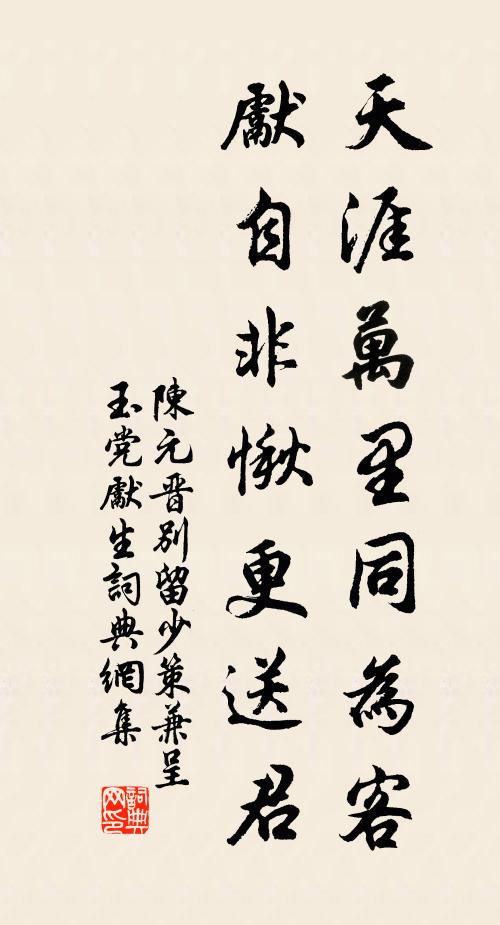 天涯萬里同為客
獻自非愀更送君
陳元晋別留少策兼呈
玉党獻生詞典網集
詞典网印